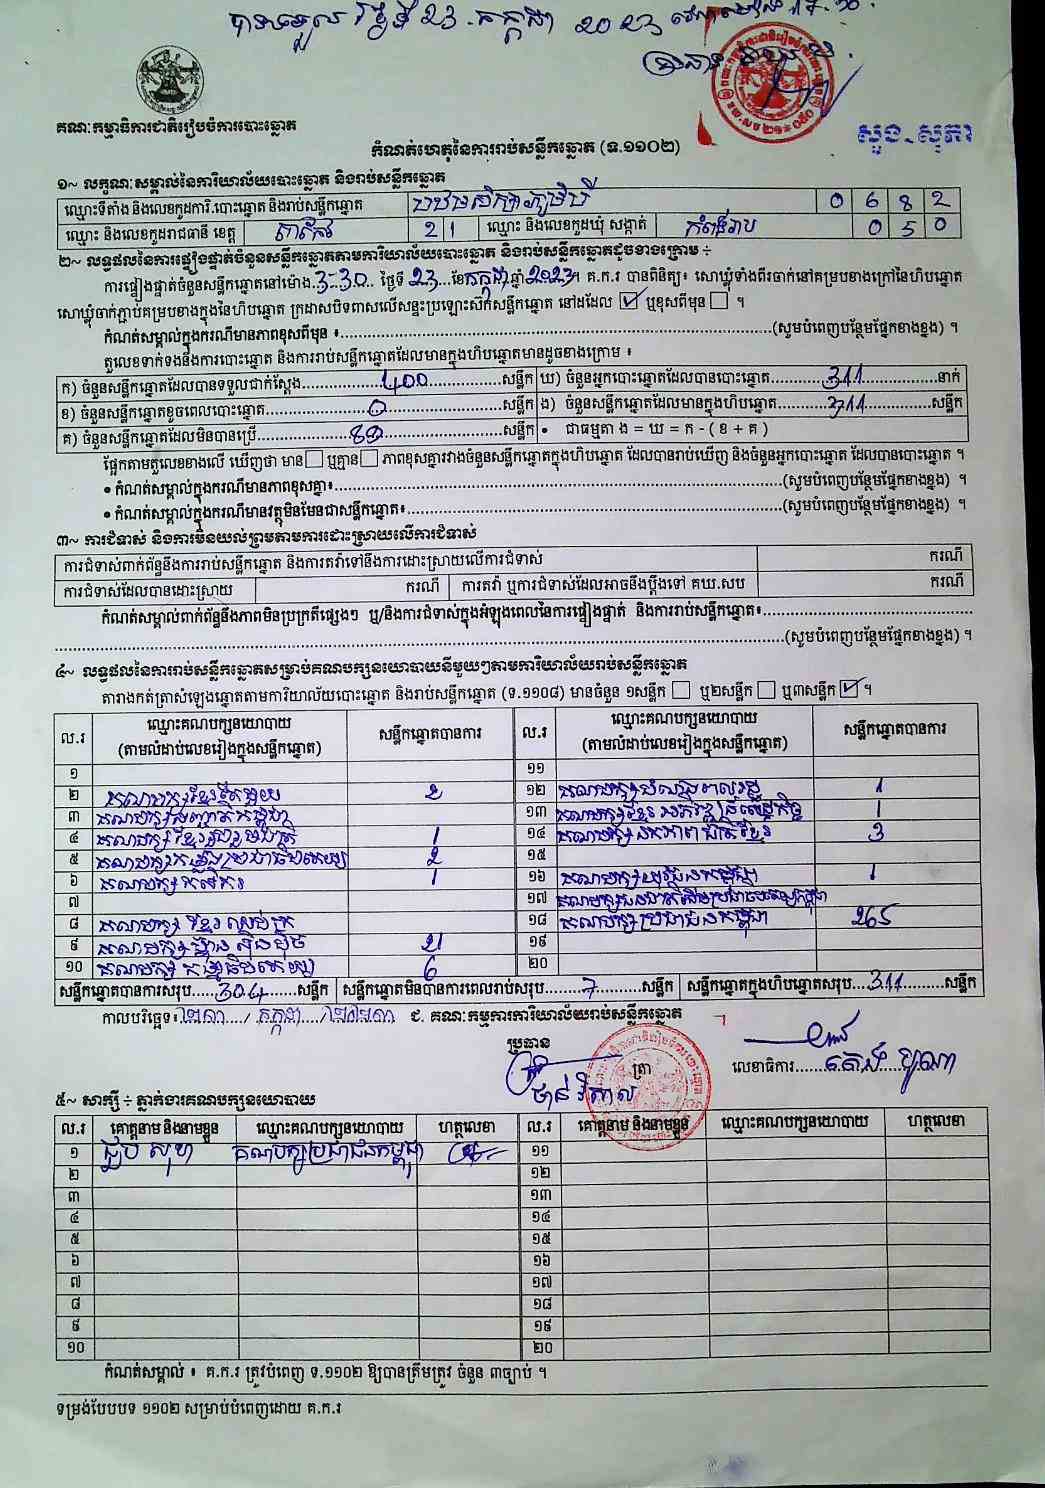 ថ្ងៃទី 23 កក្កដា 2023
គណៈកម្មាធិការជាតិរៀបចំការបោះឆ្នោត
សួង សុភា
កំណត់ហេតុនៃការរាប់សន្លឹកឆ្នោត (ទ.១១០២)
១~ លក្ខណៈសម្គាល់នៃការិយាល័យបោះឆ្នោត និងរាប់សន្លឹកឆ្នោត
ឈ្មោះទីតាំង និងលេខកូដការិ.បោះឆ្នោត និងរាប់សន្លឹកឆ្នោត 0 6 8 2
ឈ្មោះ និងលេខកូដរាជធានី ខេត្ត តាកែវ 2 1 ឈ្មោះ និងលេខកូដឃុំ សង្កាត់ កំពង់រាប 0 5 0
២~ លទ្ធផលនៃការផ្ទៀងផ្ទាត់ចំនួនសន្លឹកឆ្នោតតាមការិយាល័យបោះឆ្នោត និងរាប់សន្លឹកឆ្នោតដូចខាងក្រោម ÷
ការផ្ទៀងផ្ទាត់ចំនួនសន្លឹកឆ្នោតនៅម៉ោង 3-30 ថ្ងៃទី 23 ខែ កក្កដា ឆ្នាំ 2023។ គ.ក.រ បានពិនិត្យ៖ សោឃ្លុំទាំងពីរចាក់នៅគម្របខាងក្រៅនៃហិបឆ្នោត
សោឃ្លុំចាក់ភ្ជាប់គម្របខាងក្នុងនៃហិបឆ្នោត ក្រដាសបិទពាសលើសន្ទះប្រឡោះស៊កសន្លឹកឆ្នោត នៅដដែល ☑ ឬខុសពីមុន ☐ ។
កំណត់សម្គាល់ក្នុងករណីមានភាពខុសពីមុន ៖ (សូមបំពេញបន្ថែមផ្នែកខាងខ្នង) ។
តួលេខទាក់ទងនឹងការបោះឆ្នោត និងការរាប់សន្លឹកឆ្នោតដែលមានក្នុងហិបឆ្នោតមានដូចខាងក្រោម ៖
ក) ចំនួនសន្លឹកឆ្នោតដែលបានទទួលជាក់ស្តែង 400 សន្លឹក ឃ) ចំនួនអ្នកបោះឆ្នោតដែលបានបោះឆ្នោត 311 នាក់
ខ) ចំនួនសន្លឹកឆ្នោតខូចពេលបោះឆ្នោត 0 សន្លឹក ង) ចំនួនសន្លឹកឆ្នោតដែលមានក្នុងហិបឆ្នោត 311 សន្លឹក
គ) ចំនួនសន្លឹកឆ្នោតដែលមិនបានប្រើ 89 សន្លឹក • ជាធម្មតា ង = ឃ = ក - ( ខ + គ )
ផ្អែកតាមតួលេខខាងលើ ឃើញថា មាន ☐ ឬគ្មាន ☐ ភាពខុសគ្នារវាងចំនួនសន្លឹកឆ្នោតក្នុងហិបឆ្នោត ដែលបានរាប់ឃើញ និងចំនួនអ្នកបោះឆ្នោត ដែលបានបោះឆ្នោត ។
• កំណត់សម្គាល់ក្នុងករណីមានភាពខុសគ្នា៖ (សូមបំពេញបន្ថែមផ្នែកខាងខ្នង) ។
• កំណត់សម្គាល់ក្នុងករណីមានវត្ថុមិនមែនជាសន្លឹកឆ្នោត៖ (សូមបំពេញបន្ថែមផ្នែកខាងខ្នង) ។
៣~ ការជំទាស់ និងការមិនយល់ព្រមតាមការដោះស្រាយលើការជំទាស់
ការជំទាស់ពាក់ព័ន្ធនឹងការរាប់សន្លឹកឆ្នោត និងការតវ៉ាទៅនឹងការដោះស្រាយលើការជំទាស់ ករណី
ការជំទាស់ដែលបានដោះស្រាយ ករណី ការតវ៉ា ឬការជំទាស់ដែលអាចនឹងប្តឹងទៅ គឃ.សប ករណី
កំណត់សម្គាល់ពាក់ព័ន្ធនឹងភាពមិនប្រក្រតីផ្សេងៗ ឬ/និងការជំទាស់ក្នុងអំឡុងពេលនៃការផ្ទៀងផ្ទាត់ និងការរាប់សន្លឹកឆ្នោត៖
(សូមបំពេញបន្ថែមផ្នែកខាងខ្នង) ។
៤~ លទ្ធផលនៃការរាប់សន្លឹកឆ្នោតសម្រាប់គណបក្សនយោបាយនីមួយៗតាមការិយាល័យរាប់សន្លឹកឆ្នោត
តារាងកត់ត្រាសំឡេងឆ្នោតតាមការិយាល័យបោះឆ្នោត និងរាប់សន្លឹកឆ្នោត (ទ.១១០៨) មានចំនួន ១សន្លឹក ☐ ឬ២សន្លឹក ☐ ឬ៣សន្លឹក ☑ ។
ល.រ ឈ្មោះគណបក្សនយោបាយ (តាមលំដាប់លេខរៀងក្នុងសន្លឹកឆ្នោត) សន្លឹកឆ្នោតបានការ ល.រ ឈ្មោះគណបក្សនយោបាយ (តាមលំដាប់លេខរៀងក្នុងសន្លឹកឆ្នោត) សន្លឹកឆ្នោតបានការ
១ ១១
២ គណបក្សខ្មែរតែមួយ 2 ១២ 1
៣ គណបក្សសញ្ជាតិកម្ពុជា ១៣ គណបក្សខ្មែរអភិវឌ្ឍន៍សេដ្ឋកិច្ច 1
៤ គណបក្សខ្មែររួបរួមជាតិ 1 ១៤ គណបក្សឯកភាពជាតិខ្មែរ 3
៥ គណបក្សកម្លាំងប្រជាធិបតេយ្យ 2 ១៥
៦ គណបក្សកសិករ 1 ១៦ គណបក្សយុវជនកម្ពុជា 1
៧ ១៧
៨ គណបក្សខ្មែរឈប់ក្រ ១៨ គណបក្សប្រជាជនកម្ពុជា 265
៩ គណបក្សហ៊្វុនស៊ិនប៉ិច 21 ១៩
១០ 6 ២០
សន្លឹកឆ្នោតបានការសរុប 304 សន្លឹក សន្លឹកឆ្នោតមិនបានការពេលរាប់សរុប 7 សន្លឹក សន្លឹកឆ្នោតក្នុងហិបឆ្នោតសរុប 311 សន្លឹក
កាលបរិច្ឆេទ៖ ២៣ / កក្កដា / ២០២៣ ជ. គណៈកម្មការការិយាល័យរាប់សន្លឹកឆ្នោត
ប្រធាន
ត្រា
លេខាធិការ
៥~ សាក្សី ÷ ភ្នាក់ងារគណបក្សនយោបាយ
ល.រ គោត្តនាម និងនាមខ្លួន ឈ្មោះគណបក្សនយោបាយ ហត្ថលេខា ល.រ គោត្តនាម និងនាមខ្លួន ឈ្មោះគណបក្សនយោបាយ ហត្ថលេខា
១ គណបក្សប្រជាជនកម្ពុជា ១១
២ ១២
៣ ១៣
៤ ១៤
៥ ១៥
៦ ១៦
៧ ១៧
៨ ១៨
៩ ១៩
១០ ២០
កំណត់សម្គាល់ ៖ គ.ក.រ ត្រូវបំពេញ ទ.១១០២ ឱ្យបានត្រឹមត្រូវ ចំនួន ៣ច្បាប់ ។
ទម្រង់បែបបទ ១១០២ សម្រាប់បំពេញដោយ គ.ក.រ